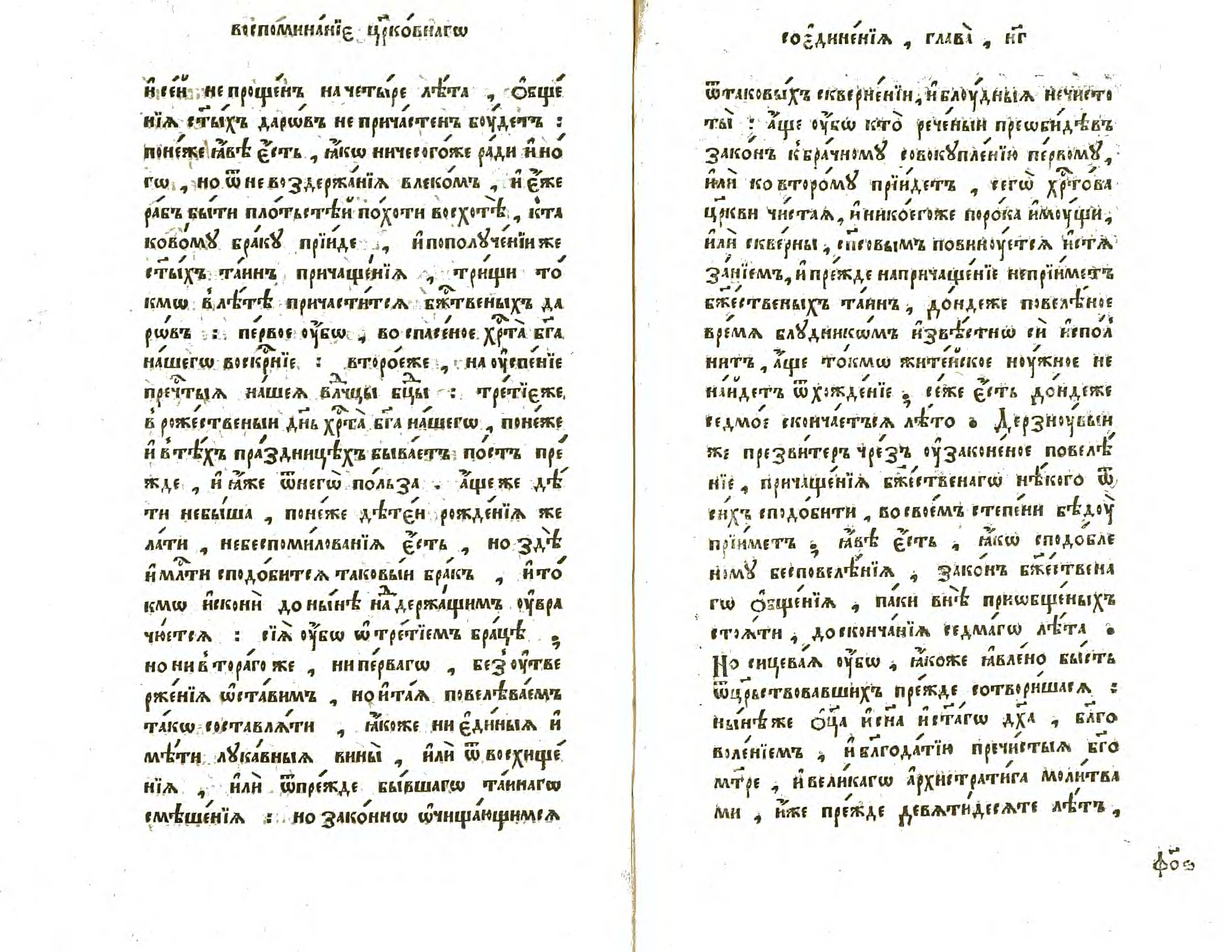 воспомина́нїе црⷭ҇ко́внагѡ
и҆ се́й непроще́нъ на четы́ре лѣ́та , ѻ҆бще
нїѧ ст҃ы́хъ даро́въ не прича́стенъ бѹ́детъ :
поне́же ꙗ҆́вѣ є҆́сть , ꙗ҆́кѡ ничесого́же ра́ди и҆но́
гѡ , но ѿ невоздержа́нїѧ влеко́мъ , и҆ є҆́же
ра́бъ бы́ти пло́тьстѣй по́хоти восхотѣ̀ , к̾та
ково́мꙋ бра́кꙋ прїи́де , и҆ пополꙋче́нїи же
ст҃ы́хъ та́инъ причаще́нїѧ , три́щи то́
кмѡ в̾лѣ́тѣ причасти́тсѧ бж҃твеныхъ да
рѡ́въ : пе́рвое ѹ҆́бѡ , во спасе́ное хрⷭ҇та̀ бг҃а
на́шегѡ воскрⷭ҇нїе : второ́еже , на ѹ҆спе́нїе
пречⷭ҇тыѧ на́шеѧ влⷣчцы бцⷣы : тре́тїеже,
в̾ роже́ственыи дн҃ь хрⷭ҇та̀ бг҃а на́шегѡ , поне́же
и҆ в̾ тѣ́хъ пра́здницѣхъ быва́етъ по́стъ пре́
жде , и҆ ꙗ҆́же ѿ него̀ по́льза . а҆́ще же дѣ́
ти небы́ша , поне́же дѣте́й рожде́нїѧ же
ла́ти , небеспомилова́нїѧ є҆́сть , но здѣ̀
и҆ млⷭ҇ти сподо́битсѧ таковы́и бра́къ , и҆ то́
кмѡ и҆сконѝ до ны́нѣ наⷣдержа́щимъ ѹ҆вра
чю́етсѧ : сїѧ̀ ѹ҆́бѡ ѡ҆ тре́тїемъ бра́цѣ ;
но ни в̾тора́го же , ни пе́рвагѡ , без̾ ѹ҆тве
рже́нїѧ ѡ҆ста́вимъ , но и҆ та́ѧ повелѣва́емъ
та́кѡ составлѧ́ти , ꙗ҆́коже ни є҆ди́ныѧ и҆
мѣ́ти лꙋка́вныѧ вины̀ , и҆лѝ ѿ восхище́
нїѧ , и҆лѝ ѿпре́жде бы́вшагѡ та́инагѡ
смѣше́нїѧ : но зако́ннѡ ѡ҆чища́ющимсѧ
сое҆дине́нїѧ , глава̀ , н҃г
ѿ таковы́хъ скверне́нїи, и҆ блѹ́дныѧ нечисто
ты̀ : а҆́ще ѹ҆́бѡ кто̀ рече́ныи преѡби́дѣвъ
зако́нъ к̾ бра́чномꙋ совокꙋпле́нїю пе́рвомꙋ,
и҆лѝ ко второ́мꙋ прїи́детъ , сегѡ̀ хрⷭ҇то́ва
цр҃кви чи́стаѧ, и҆ никоего́же поро́ка и҆мѹ́щи,
и҆лѝ скве́рны , спⷭ҇овымъ повинѹ́етсѧ и҆стѧ
за́нїемъ, и҆ пре́жде на причаще́нїе непрїи́метъ
бж҃ественыхъ та́инъ , до́ндеже повелѣ́ное
вре́мѧ блꙋдникѡ́мъ и҆звѣ́стнѡ сѝ и҆спол
нитъ , а҆́ще то́кмѡ жите́йское нѹ́жное не
на́йдетъ ѿхожде́нїе ; се́же є҆́сть до́ндеже
седмо́е сконча́етъсѧ лѣ́то . Дерзнѹ́выи
же презви́теръ чре́зъ ѹ҆зако́неное повелѣ́
нїе , причаще́нїѧ бж҃е́ственагѡ нѣ́кого ѿ
си́хъ сподо́бити , во свое́мъ степе́ни бѣ́дѹ
прїи́метъ ; ꙗ҆́вѣ є҆́сть , ꙗ҆́кѡ сподо́бле
номꙋ бесповелѣ́нїѧ , зако́нъ бж҃е́ствена
гѡ ѻ҆бще́нїѧ , па́ки внѣ̀ приѡбще́ныхъ
стоѧ́ти , до сконча́нїѧ седма́гѡ лѣ́та .
Но сицева́ѧ ѹ҆́бѡ , ꙗ҆́коже ꙗ҆вле́но бы́сть
ѿ цр҃ьствовавшихъ пре́жде сотвори́шасѧ :
ны́нѣже ѻ҆ц҃а и҆ сн҃а и҆ ст҃а́гѡ дх҃а , блг҃о
воле́нїемъ , и҆ блг҃ода́тїю пречи́стыѧ бг҃о
мт҃ре , и҆ вели́кагѡ а҆рхистрати́га моли́тва
ми , и҆́же пре́жде девѧти́десѧте лѣ́тъ ,